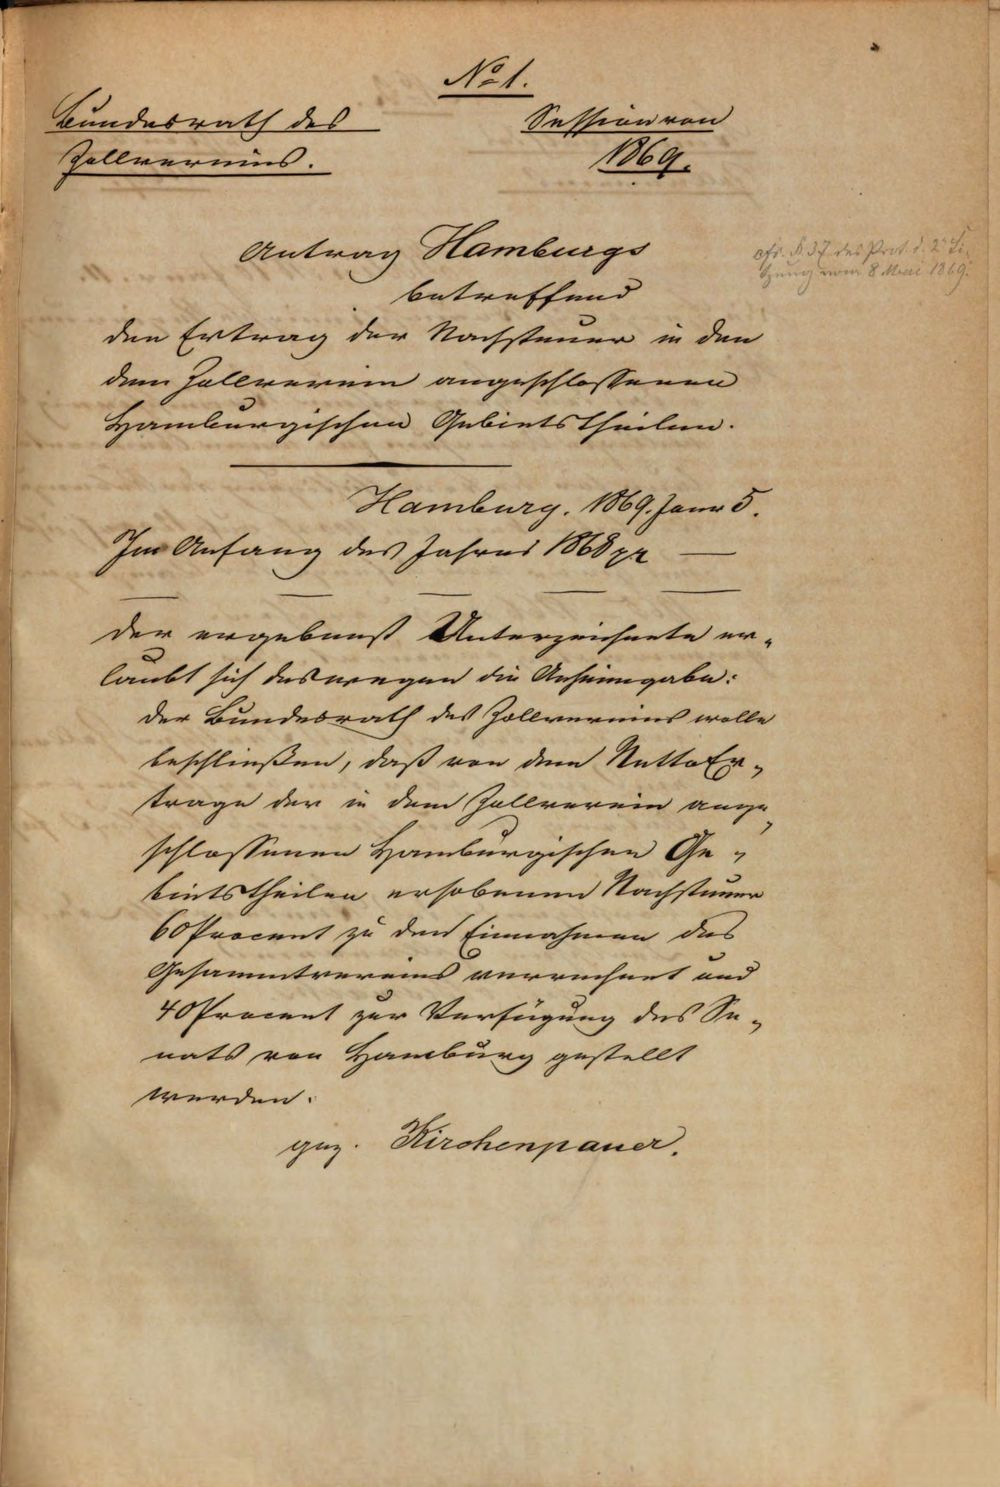 No 1.
Bundesrath des
Zollvereins.
Session von
1869.
Antrag Hamburgs
betreffend
den Ertrag der Nachsteuer in den
dem Zollverein angeschlossenen
Hamburgischen Gebietstheilen.
cfr. §. 37 des Prot. d. 2n Si-
tzung vom 8 Mai 1869.
Hamburg. 1869. Janr 5.
Im Anfang des Jahres 1868 pp —
der ergebenst Unterzeichnete er-
laubt sich deswegen die Anheimgabe:
der Bundesrath des Zollvereins wolle
beschließen, daß von dem Netto Er-
trage der in dem Zollverein ange-
schlossenen Hamburgischen Ge-
bietstheilen erhobenen Nachsteuer
60 Procent zu den Einnahmen des
Gesammtvereins verrechnet und
40 Procent zur Verfügung des Se-
nats von Hamburg gestellt
werden.
gez. Kirchenpauer.